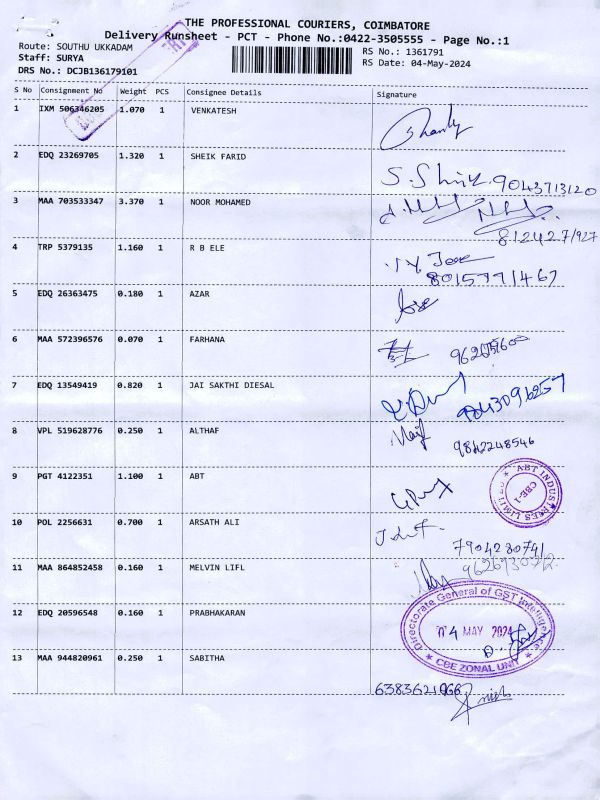 THE PROFESSIONAL COURIERS, COIMBATORE
Delivery Runsheet - PCT - Phone No.:0422-3505555 - Page No.:1
Route: SOUTHU UKKADAM
RS No.: 1361791
Staff: SURYA
RS Date: 04-May-2024
DRS No.: DCJB136179101
S No Consignment No Weight PCS Consignee Details Signature
1 IXM 506346205 1.070 1 VENKATESH
2 EDQ 23269705 1.320 1 SHEIK FARID
9043713120
3 MAA 703533347 3.370 1 NOOR MOHAMED
812427/927
4 TRP 5379135 1.160 1 R B ELE
8015771467
5 EDQ 26363475 0.180 1 AZAR
6 MAA 572396576 0.070 1 FARHANA
7 EDQ 13549419 0.820 1 JAI SAKTHI DIESAL
9843096257
8 VPL 519628776 0.250 1 ALTHAF
9842248546
9 PGT 4122351 1.100 1 ABT
ABT INDUSTRIES LIMITED
CBE-1
10 POL 2256631 0.700 1 ARSATH ALI
7904280741
11 MAA 864852458 0.160 1 MELVIN LIFL
12 EDQ 20596548 0.160 1 PRABHAKARAN
Directorate General of GST Intelligence
04 MAY 2024
CBE ZONAL UNIT
13 MAA 944820961 0.250 1 SABITHA
6383621066